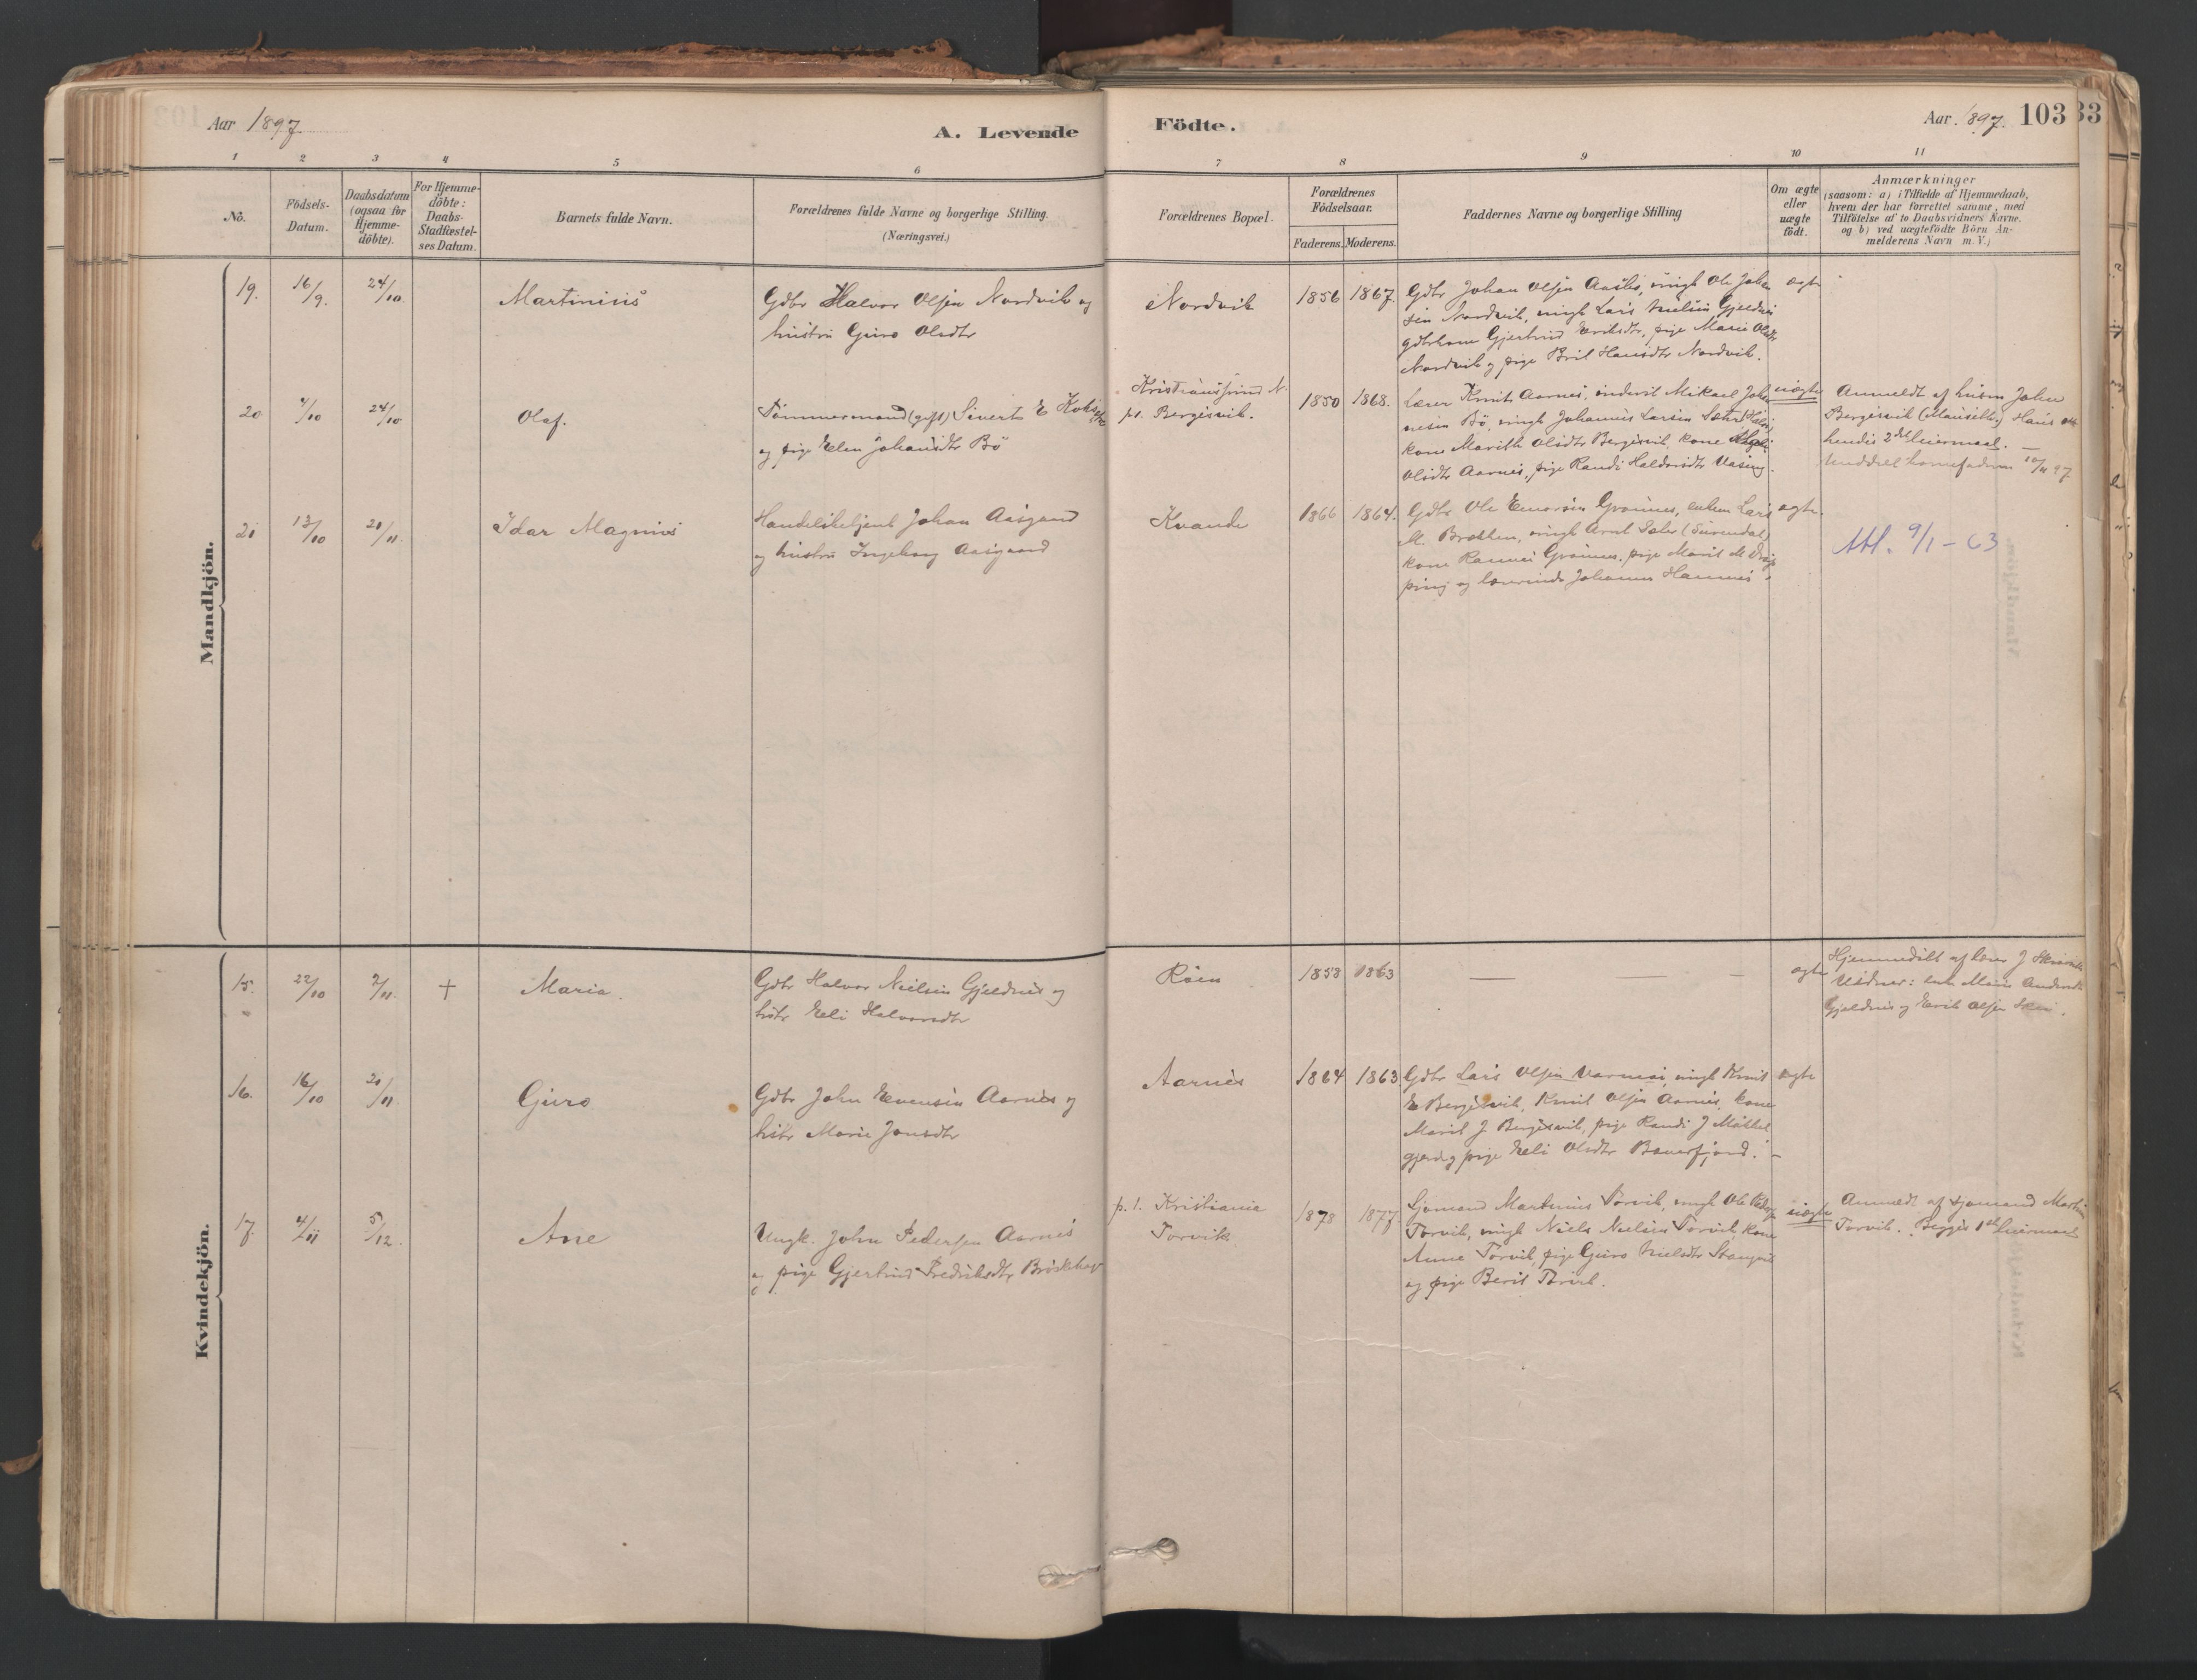 Aar 1897
A. Levende
Födte.
Aar 1897. 103
33
1 2 3 4 5 6 7 8 9 10 11
No.
Födsels-
Datum.
Daabsdatum
(ogsaa for
Hjemme-
döbte).
For Hjemme-
döbte:
Daabs-
Stadfæstel-
ses Datum.
Barnets fulde Navn.
Forældrenes fulde Navne og borgerlige Stilling.
(Næringsvei.)
Forældrenes Bopæl.
Forældrenes
Födselsaar.
Faderens. Moderens.
Faddernes Navne og borgerlige Stilling
Om ægte
eller
uægte
födt.
Anmærkninger
(saasom: a) i Tilfælde af Hjemmedaab,
hvem der har forrettet samme, med
Tilföielse af to Daabsvidners Navne.
og b) ved uægtefödte Börn An-
melderens Navn m. V.)
Mandkjön.
19. 16/9. 24/10 Martinius
Gdbr Halvor Olsen Nordvik og
hustru Guro Olsdtr
Nordvik 1856 1867.
Gdbr Johan Olsen, ungk Ole Johan
sen Nordvik, ungk Lars Nielsen Gjeldnes
gdbrkone Gjertrud Eriksdtr, pige Marie Olsdtr
Nordvik og pige Brit Hansdtr Nordvik.
ægte
20 4/10 24/10 Olaf.
Tömmermand (gift) Sivert E
og pige Elen Johansdtr Bö
Kristianssund N.
pt. Bergesvik.
1850 1868.
Lærer Knut Aarnes, Mikael Johan
nesen Bö, ungk Johannes Larsen
kone Marith Olsdtr Bergesvik, kone
Olsdtr Aarnes, pige Randi
uægte
Anmeldt af husm John
Bergesvik Hans
hendes 2det leiermaal. —
barnefaderen 10/11 97
21 13/10 21/11. Idar Magnus
Handelsbetjent Johan Aasgaard
og hustru Ingeborg Aasgaard
Kvande 1866 1864.
Gdbr Ole Grönnes, enkem Lars
M. Bratten, ungk Arnt Sæter (Surendal)
kone Grönnes, pige Marit M
og lærerinde Johanna Hamnes
ægte.
Att. 9/1 - 63
Kvindekjön.
15. 22/10 2/11. † Maria.
Gdbr Halvor Nielsen Gjeldnes og
hstr Eli Halvorsdtr
Röen 1858 1863
— — —
ægte
Hjemmedöbt af lærer J
Vidner: enke Marie
Gjeldnes og Erik Olsen
16. 16/10 21/11. Guro
Gdbr John Evensen Aarnes og
hstr Marie Jonsdtr
Aarnes 1864 1863
Gdbr Lars Olsen, ungk Knut
E Bergesvik, Knut Olsen Aarnes, kone
Marit J. Bergesvik, pige Randi J
og pige Eli Olsdtr Bæverfjord. —
ægte
17. 4/11 5/12. Ane
Ungk. John Pedersen Aarnes
og pige Gjertrud Fredriksdtr
p. t. Kristiania
Torvik
1878 1877
Sjömand Martinus Torvik, ungk Ole
Torvik, ungk Niels Nielsen Torvik, kone
Anne Torvik, pige Guro Nielsdtr Stangvik
og pige Berit Torvik.
uægte
Anmeldt af sjömand
Torvik. Begges 1ste leiermaal